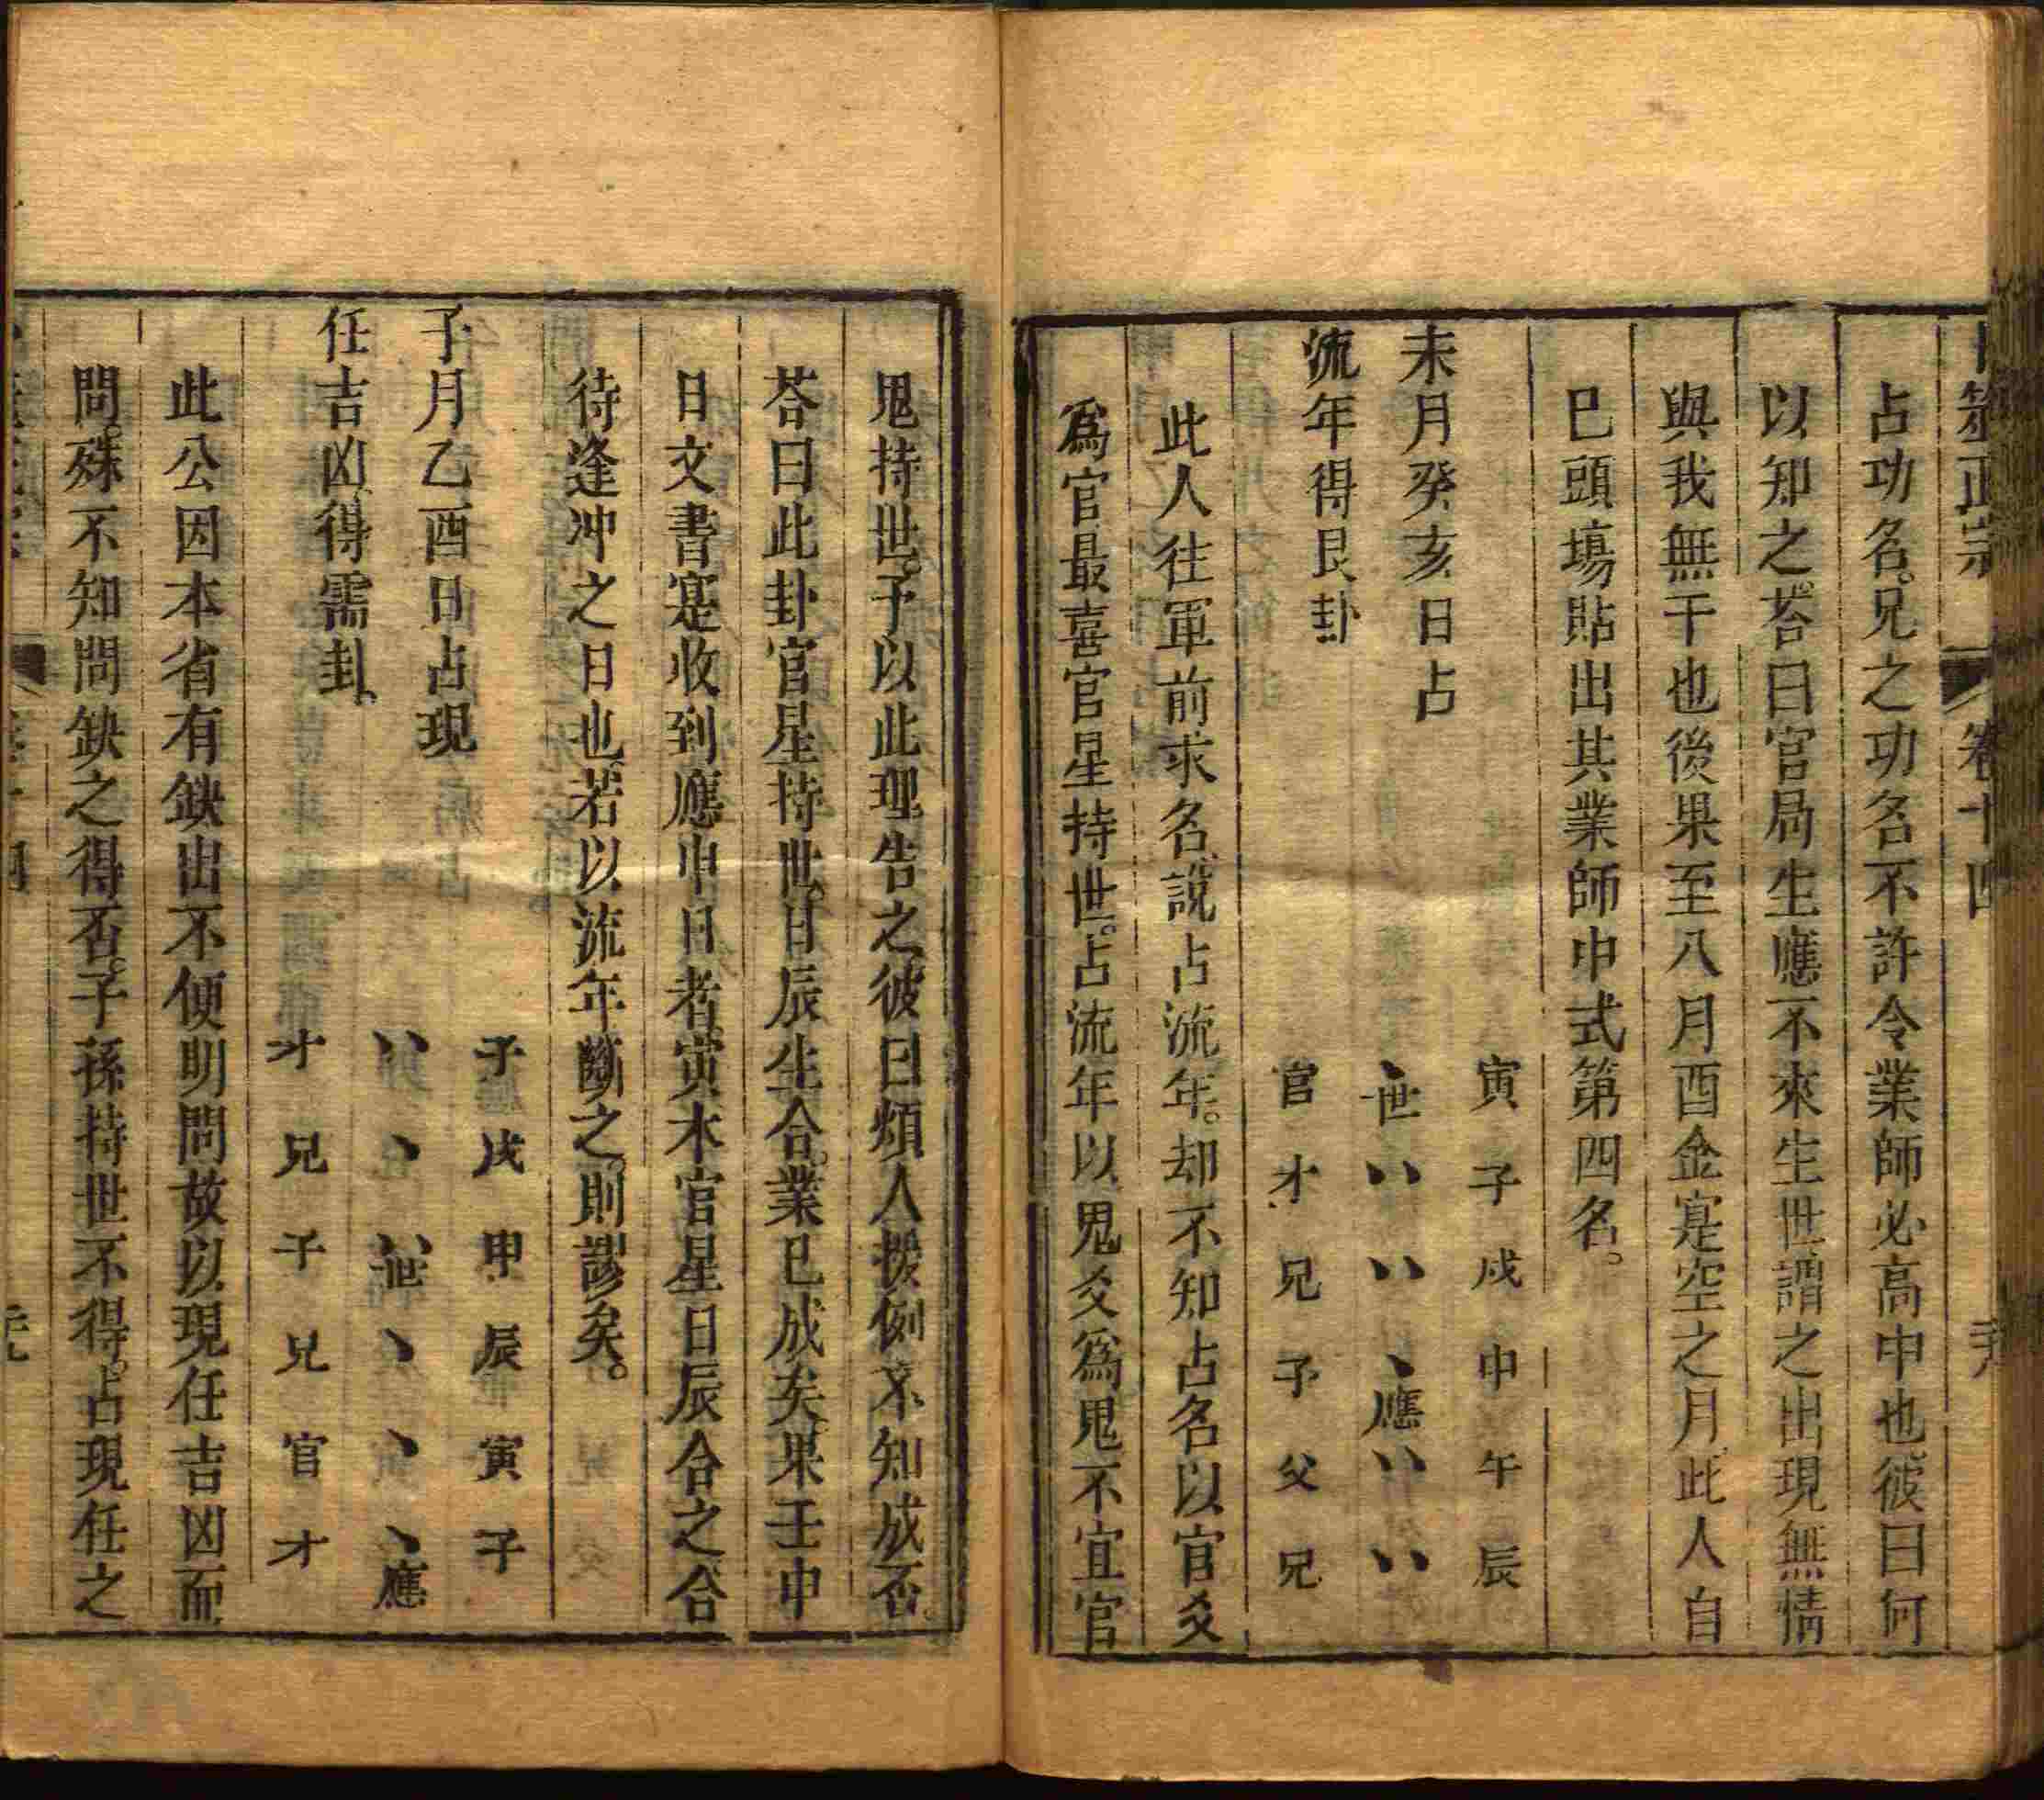 卜筮正宗 卷十四
占功名。兄之功名不許令業師必高中也彼曰何
以知之。荅曰官局生應不來生世謂之出現無情
與我無干也後果至八月酉金寔空之月此人自
巳頭塲貼出其業師中式第四名。
未月癸亥日占
流年得艮卦
寅 子 戌 申 午 辰
、世 、、 、、 、應 、、 、、
官 才 兄 子 父 兄
此人往軍前求名、說占流年。却不知占名以官爻
爲官最喜官星持世。占流年以鬼爻爲鬼不宜官
鬼持世。予以此理告之彼曰煩人援例不知成否。
荅曰此卦官星持世。日辰生合。業已成矣。果壬申
日文書寔收到應申日者。寅木官星日辰合之合
待逢冲之日也。若以流年斷之。則謬矣。
子月乙酉日占現
任吉凶、得需卦、
子 戌 申 辰 寅 子
、、 、 、、世 、 、 、應
才 兄 子 兄 官 才
此公因本省有缺出不便明問故以現任吉凶而
問。殊不知問缺之得否。子孫持世不得。占現任之